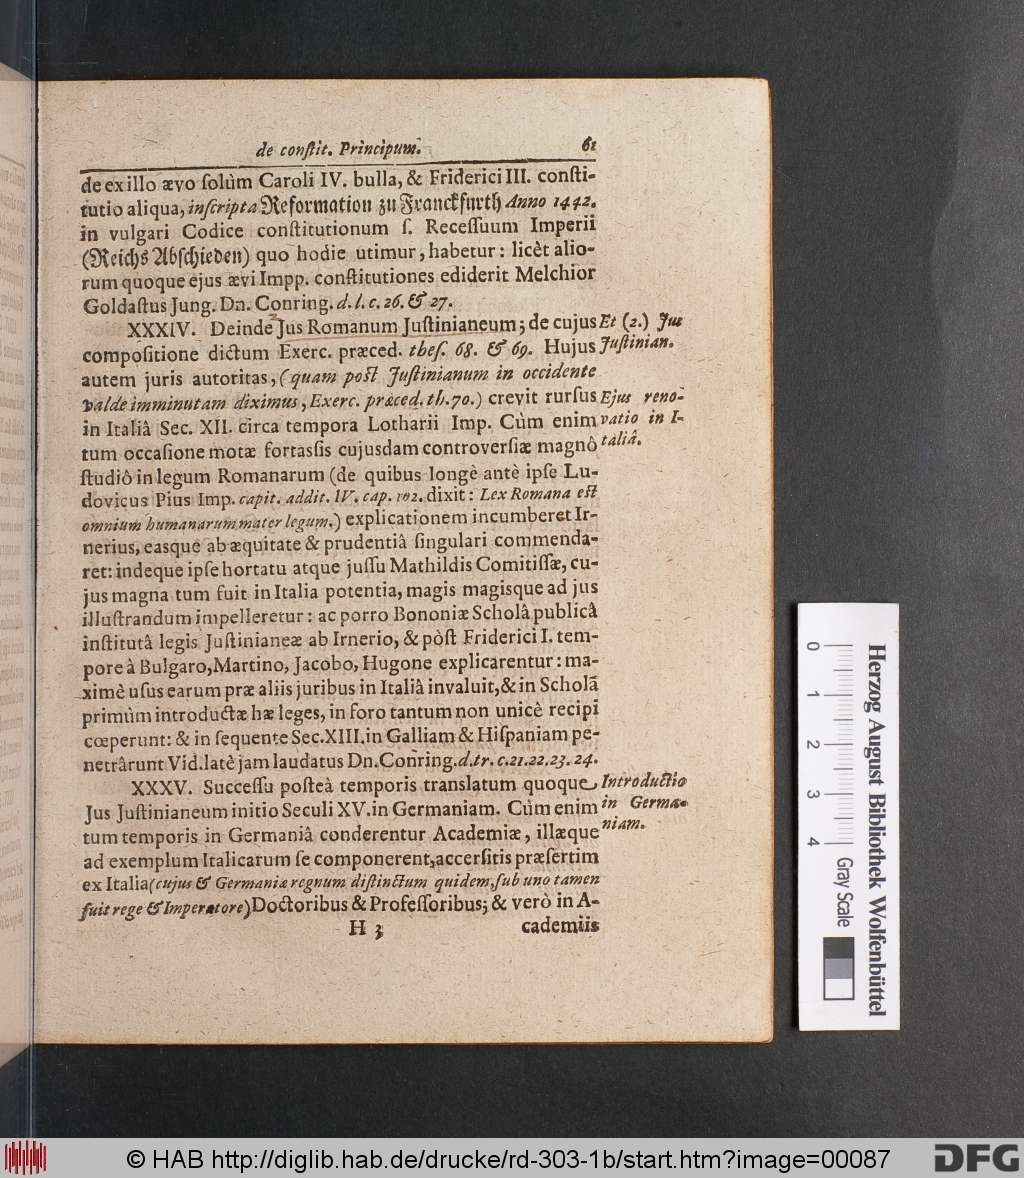 de conſtit. Principum. 61
de ex illo ævo ſolùm Caroli IV. bulla, & Friderici III. conſti-
tutio aliqua, inſcripta Reformation zu Franckfurth Anno 1442.
in vulgari Codice conſtitutionum ſ. Receſſuum Imperii
(Reichs Abſchieden) quo hodie utimur, habetur: licèt alio-
rum quoque ejus ævi Impp. conſtitutiones ediderit Melchior
Goldaſtus Jung. Dn. Conring. d. l. c. 26. & 27.
XXXIV. Deinde Jus Romanum Juſtinianeum; de cujus
Et (2.) Jus
compoſitione dictum Exerc. præced. theſ. 68. & 69. Hujus
Juſtinian.
autem juris autoritas, (quam poſt Juſtinianum in occidente
valde imminutam diximus, Exerc. præced. th. 70.) crevit rurſus
Ejus reno-
in Italiâ Sec. XII. circa tempora Lotharii Imp. Cùm enim
vatio in I-
tum occaſione motæ fortaſſis cujusdam controverſiæ magnô
taliâ.
ſtudiô in legum Romanarum (de quibus longè antè ipſe Lu-
dovicus Pius Imp. capit. addit. IV. cap. 102. dixit: Lex Romana eſt
omnium humanarum mater legum.) explicationem incumberet Ir-
nerius, easque ab æquitate & prudentiâ ſingulari commenda-
ret: indeque ipſe hortatu atque juſſu Mathildis Comitiſſæ, cu-
jus magna tum fuit in Italia potentia, magis magisque ad jus
illuſtrandum impelleretur: ac porro Bononiæ Scholâ publicâ
inſtitutâ legis Juſtinianeæ ab Irnerio, & pòſt Friderici I. tem-
pore à Bulgaro, Martino, Jacobo, Hugone explicarentur: ma-
ximè uſus earum præ aliis juribus in Italiâ invaluit, & in Scholã
primùm introductæ hæ leges, in foro tantum non unicè recipi
cœperunt: & in ſequente Sec. XIII. in Galliam & Hiſpaniam pe-
netrârunt Vid. latè jam laudatus Dn. Conring. d. tr. c. 21. 22. 23. 24.
XXXV. Succeſſu poſteà temporis translatum quoque
Introductio
Jus Juſtinianeum initio Seculi XV. in Germaniam. Cùm enim
in Germa-
tum temporis in Germaniâ conderentur Academiæ, illæque
niam.
ad exemplum Italicarum ſe componerent, accerſitis præſertim
ex Italia (cujus & Germaniæ regnum diſtinctum quidem, ſub uno tamen
fuit rege & Imperatore) Doctoribus & Profeſſoribus; & verò in A-
H 3 cademiis
0 1 2 3 4 Gray Scale
Herzog August Bibliothek Wolfenbüttel
© HAB http://diglib.hab.de/drucke/rd-303-1b/start.htm?image=00087
DFG